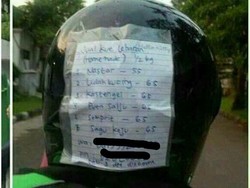 Jual Kue Lebaran
(homemade) 1/2 kg
1. Nastar - 55
2. Lidah kucing - 65
3. Kastengel - 65
4. Putri Salju - 65
5. Semprit - 65
6. Sagu Keju - 65